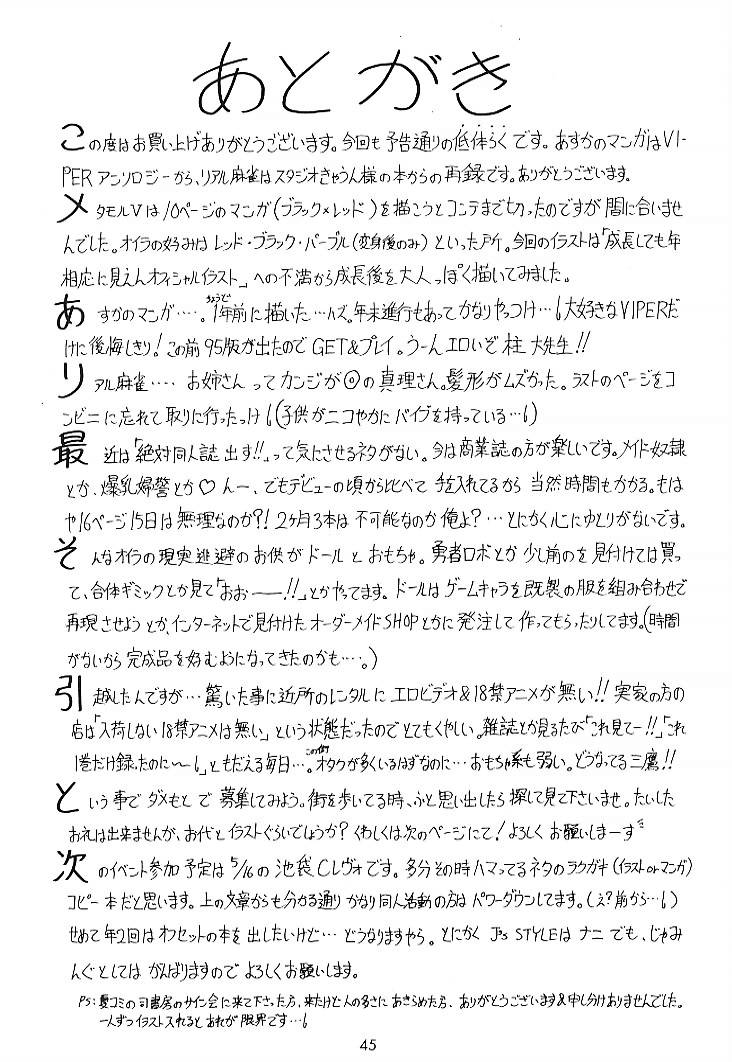 あとがき
この度はお買い上げありがとうございます。今回も予告通りの低体らくです。あすかのマンガはVI-
PERアンソロジーから、リアル麻雀はスタジオきゃうん様の本からの再録です。ありがとうございます。
メタモルVは10ページのマンガ(ブラック×レッド)を描こうとコンテまで切ったのですが間に合いませ
んでした。オイラの好みはレッド・ブラック・パープル(変身後のみ)といった所。今回のイラストは「成長しても年
相応に見えんオフィシャルイラスト」への不満から成長後を大人っぽく描いてみました。
あすかのマンガ‥‥。ちょうど1年前に描いた…ハズ。年末進行もあってかなりやっつけ…6大好きなVIPERだ
けに後悔しきり!この前95版が出たのでGET&プレイ。うーんエロいぞ柱大先生!!
リアル麻雀‥‥お姉さんってカンジが◎の真理さん。髪形がムズかった。ラストのページをコ
ンビニに忘れて取りに行ったっけ6(子供がニコやかにバイブを持っている…6)
最近は「絶対同人誌出す!!」って気にさせるネタがない。今は商業誌の方が楽しいです。メイド奴隷
とか、爆乳婦警とか♡んー、でもデビューの頃から比べて手を入れてるから当然時間もかかる。もは
や16ページ15日は無理なのか?!2ヶ月3本は不可能なのか俺よ?…とにかく心にゆとりがないです。
そんなオイラの現実逃避のお供がドールとおもちゃ。勇者ロボとか少し前のを見付けては買っ
て、合体ギミックとか見て「おぉ――!!」とかやってます。ドールはゲームキャラを既製の服を組み合わせで
再現させようとか、インターネットで見付けたオーダーメイドSHOPとかに発注して作ってもらったりしてます。(時間
がないから完成品を好むようになってきたのかも‥‥。)
引越したんですが…驚いた事に近所のレンタルにエロビデオ&18禁アニメが無い!!実家の方の
店は「入荷しない18禁アニメは無い」という状態だったのでとてもくやしい。雑誌とか見るたび「これ見てー!!」「これ
1巻だけ録ったのに〜6」ともだえる毎日…。この街オタクが多くいるはずなのに…おもちゃ系も弱い。どうなってる三鷹!!
という事でダメもとで募集してみよう。街を歩いてる時、ふと思い出したら探して見て下さいませ。たいした
お礼は出来ませんが、お代とイラストぐらいでしょうか?くわしくは次のページにて!よろしくお願いしまーす
次のイベント参加予定は5/16の池袋Cレヴォです。多分その時ハマってるネタのラクガキ(イラストorマンガ)
コピー本だと思います。上の文章からも分かる通りかなり同人活動の方はパワーダウンしてます。(え?前から…6)
せめて年2回はオフセットの本を出したいけど…どうなりますやら。とにかくJ's STYLEはナニでも、じゃみ
んぐとしてはがんばりますのでよろしくお願いします。
PS:夏コミの司書房のサイン会に来て下さった方、来たけど人の多さにあきらめた方、ありがとうございます&申し分けありませんでした。
一人ずつイラスト入れるとあれが限界です…6
45